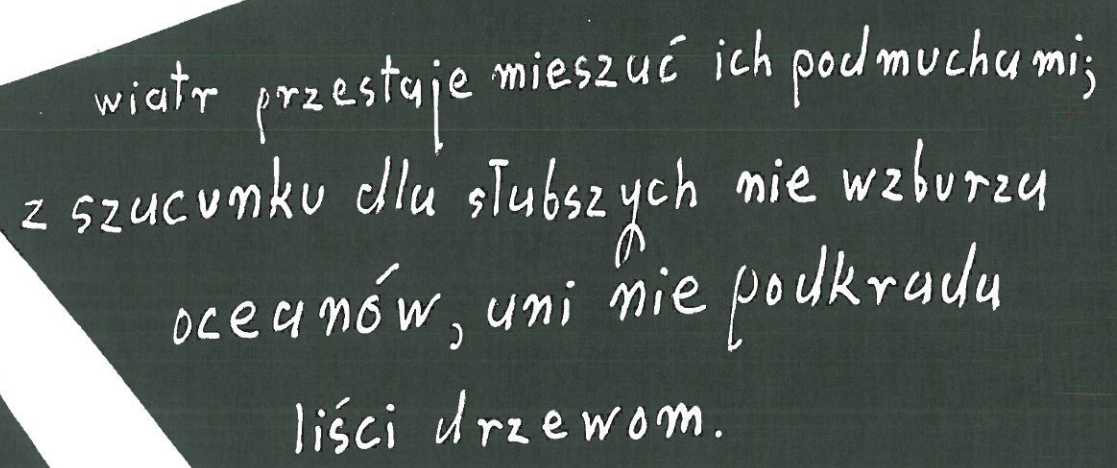 wiatr przestaje mieszać ich podmuchami;
z szacunku dla słabszych nie wzburza
oceanów, ani nie podkrada
liści drzewom.